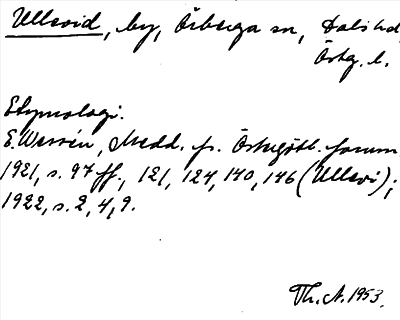 Ullevid, by, Örberga sn, Dals hd,
Östg. l.
Etymologi.
E. Wessén, Medd. fr. Östergötl. fornm.
1921, s. 97 ff., 121, 124, 140, 146 (Ullevi);
1922, s. 2, 4, 9.
Th. A. 1953.